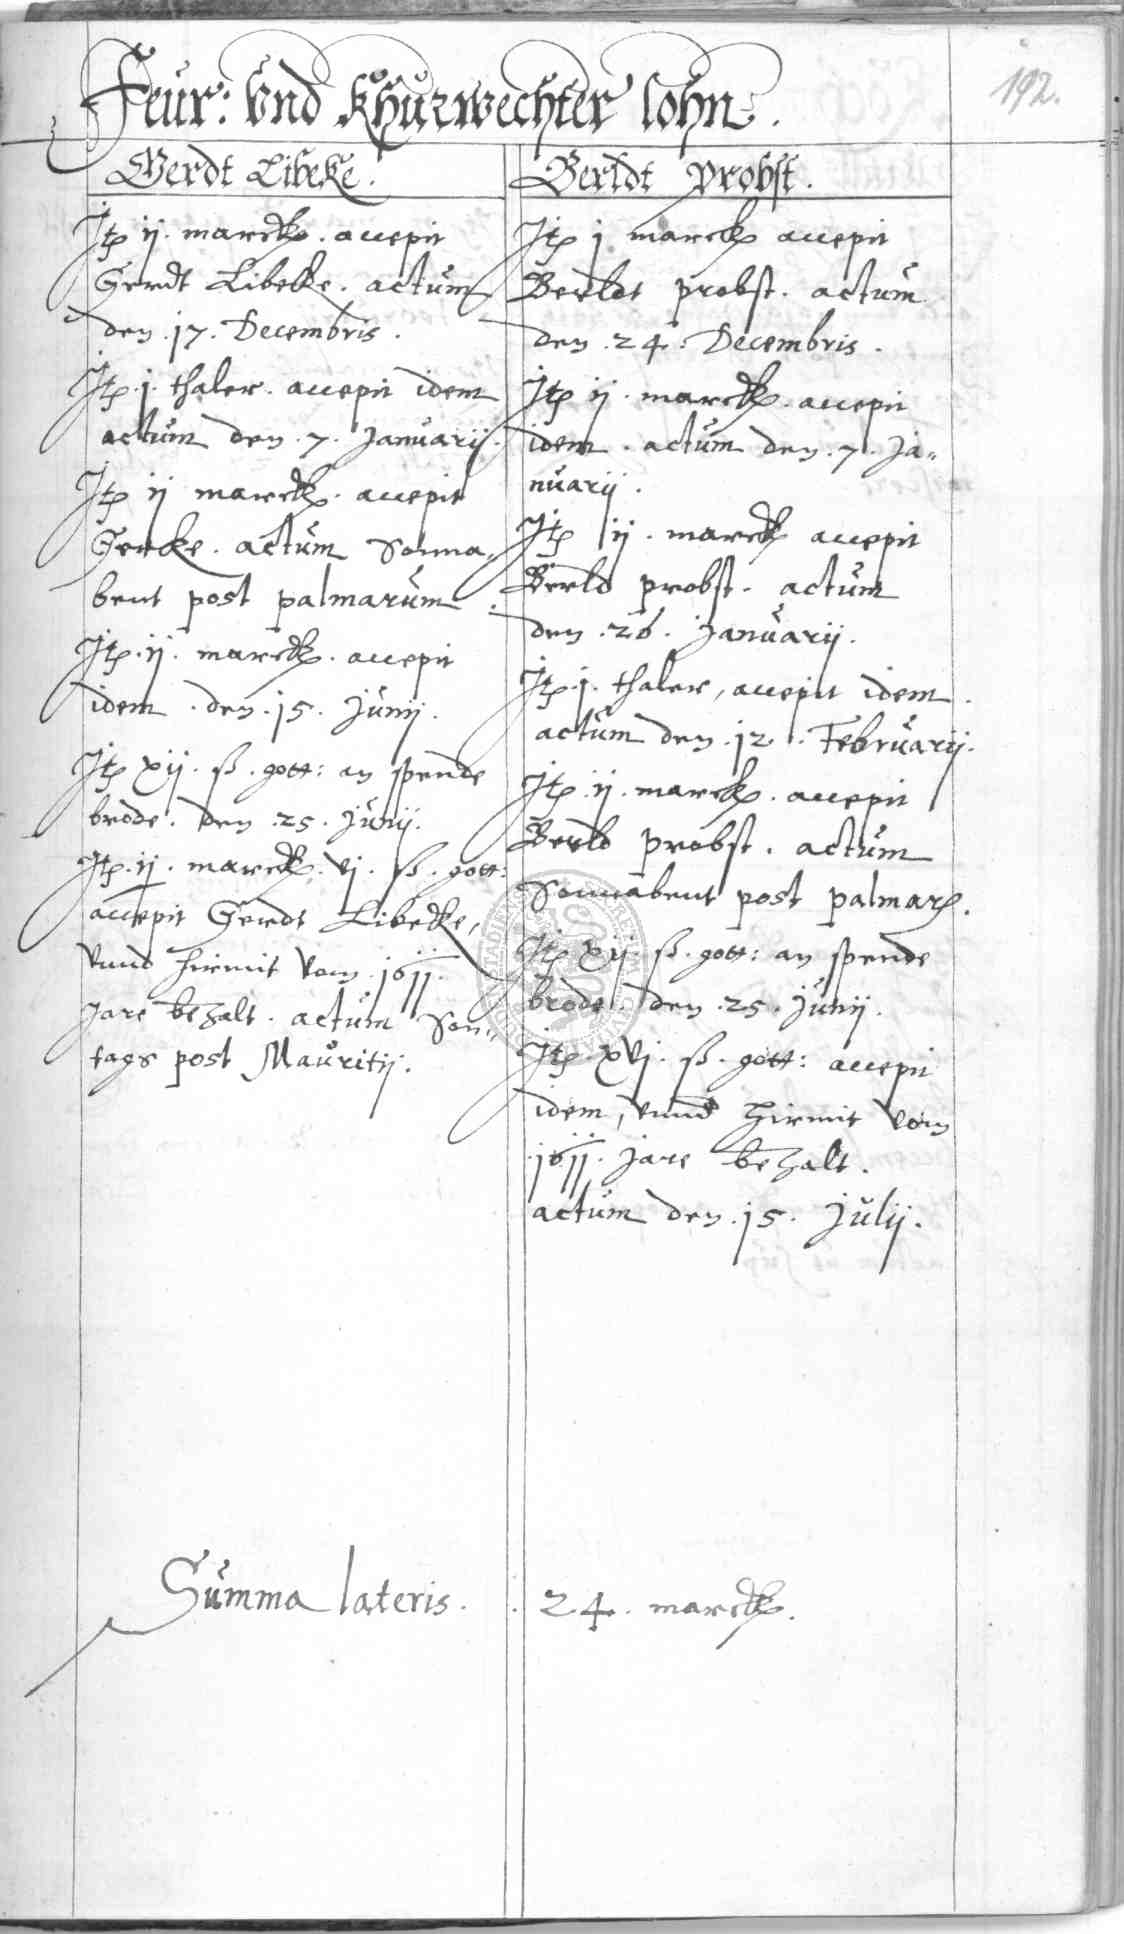 192.
Feur: Vnd Khurwechter lohn.
Gerdt Libeke.
Itz ij. marck. accepit
Gerdt Libeke. actum
den .17. Decembris.
Itz .j. thaler. accepit idem
actum den .7. Januarij.
Itz ij marck. accepit
Gerke. actum Sonna„
bent post palmarum.
Itz .ij. marck. accepit
idem . den .15. Junij.
Itz xij. ß. gott: an spende
brode. den .25. Junij.
Itz .ij. marck. vj. ß. gott:
accepit Gerdt Libecke,
vnnd hirmit vom .1611.
Jare bezalt. actum Son„
tags post Mauritij.
Berldt Probst.
Itz j marck accepit
Berldt probst. actum
den .24. Decembris.
Itz ij. marck. accepit
idem. actum den .7. Ja„
nuarij.
Itz ij. marck accepit
Berld probst. actum
den .26. Januarij.
Itz .j. thaler, accepit idem.
actum den .12. Februarij.
Itz .ij. marck. accepit
Berld probst. actum
Sonnabent post palmarz.
Itz xij. ß. gott: an spende
brode. den .25. Junij.
Itz .xvj. ß. gott: accepit
idem, vnnd hirmit vom
.1611. Jare bezalt.
actum den .15. Julij.
Summa lateris. 24. marck.